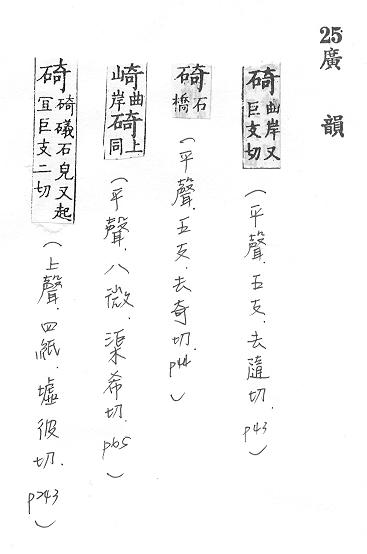 25廣韻
碕曲岸又巨支切
(平聲．五支．去隨切．p43)
碕石橋
(平聲．五支．去奇切．p44)
崎曲岸碕上同
(平聲．八微．渠希切．p65)
碕碕礒石皃又起冝巨支二切
(上聲．四紙．墟彼切．p243)